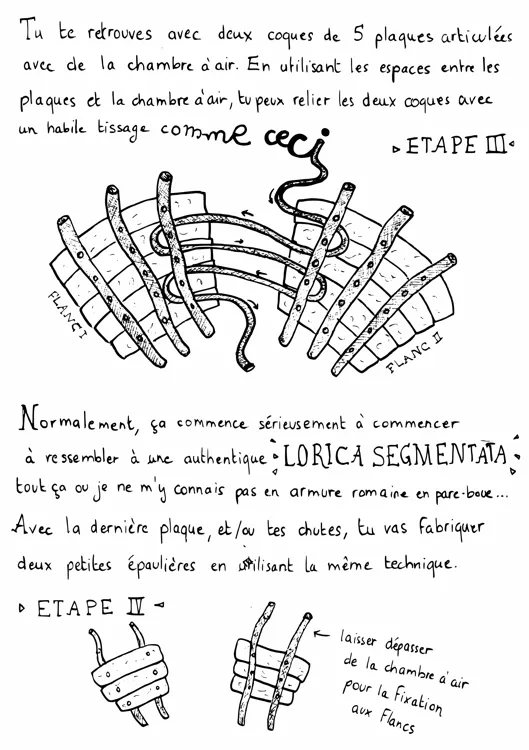 Tu te retrouves avec deux coques de 5 plaques articulées
avec de la chambre à air. En utilisant les espaces entre les
plaques et la chambre à air, tu peux relier les deux coques avec
un habile tissage comme ceci
ETAPE III
FLANC I
FLANC II
Normalement, ça commence sérieusement à commencer
à ressembler à une authentique LORICA SEGMENTATA
tout ça ou je ne m'y connais pas en armure romaine en pare-boue...
Avec la dernière plaque, et/ou tes chutes, tu vas fabriquer
deux petites épaulières en utilisant la même technique.
ETAPE IV
laisser dépasser
de la chambre à air
pour la fixation
aux Flancs